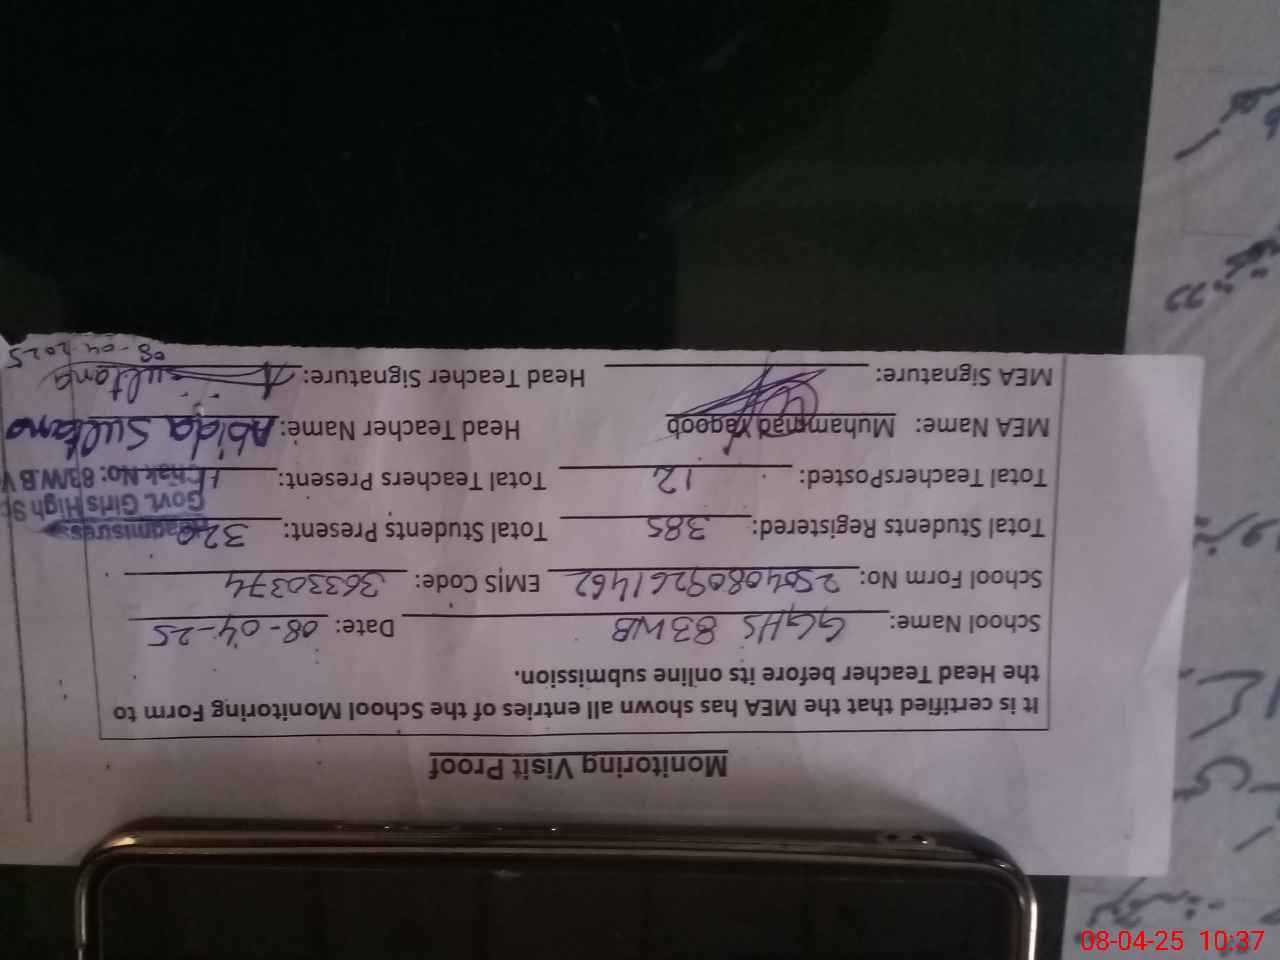 Monitoring Visit Proof
It is certified that the MEA has shown all entries of the School Monitoring Form to
the Head Teacher before its online submission.
School Name: GGHS 83WB Date: 08-04-25
School Form No: 25040809261462 EMIS Code: 36330374
Total Students Registered: 385 Total Students Present:
Total TeachersPosted: 12 Total Teachers Present:
MEA Name: Muhammad Yaqoob Head Teacher Name: Abida Sultana
MEA Signature: Head Teacher Signature: Sultana
08-04-2025
Headmistress
Govt. Girls High
Chak No: 83/W.B
08-04-25 10:37